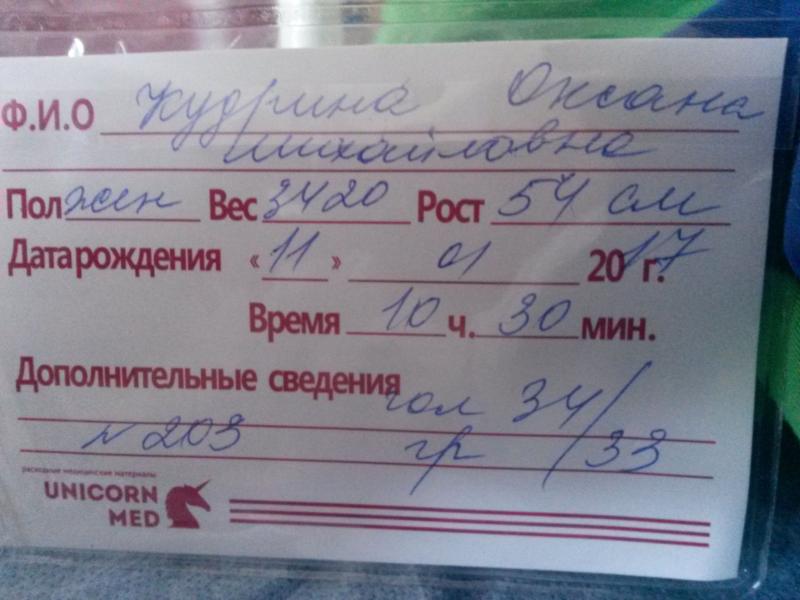 Ф.И.О Кудрина Оксана
Михайловна
Пол жен Вес 3420 Рост 54 см
Дата рождения «11» 01 2017 г.
Время 10 ч. 30 мин.
Дополнительные сведения
гол 34/
N 203 гр /33
расходные медицинские материалы
UNICORN
MED